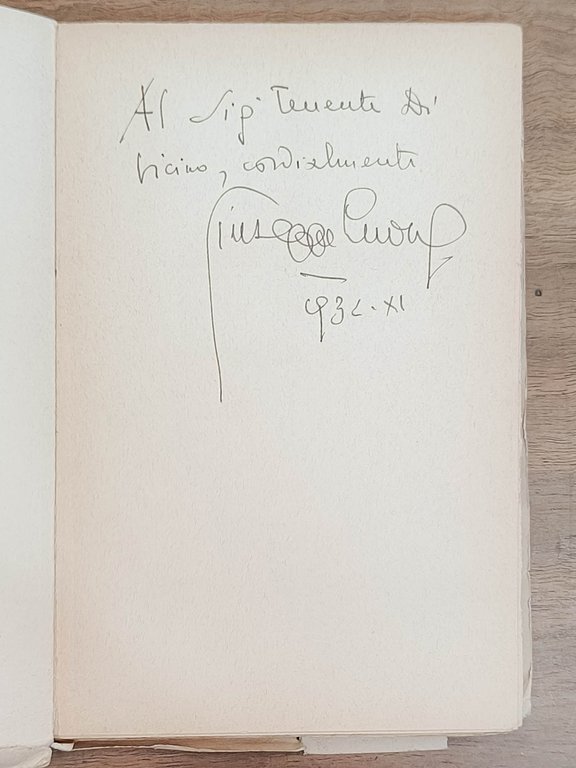 Al Sig. Tenente Di
Vicino, cordialmente
Giuseppe
932 - XI